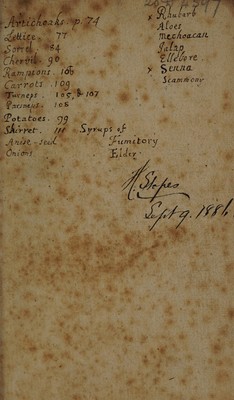 Artichoaks p. 74
Lettice. 77
Sorrel. 84
Chervil 90
Rampions. 106
Carrots. 109
Turneps. 105, & 107
Parsneps. 108
Potatoes. 99
Skirret. 111
Anise-seed
Onions
x Rhubarb
Aloes
Mechoacan
Jalap
Ellebore
x Senna
Scammony
Syrups of
Fumitory
Elder
H. Stopes
Sept 9. 1886